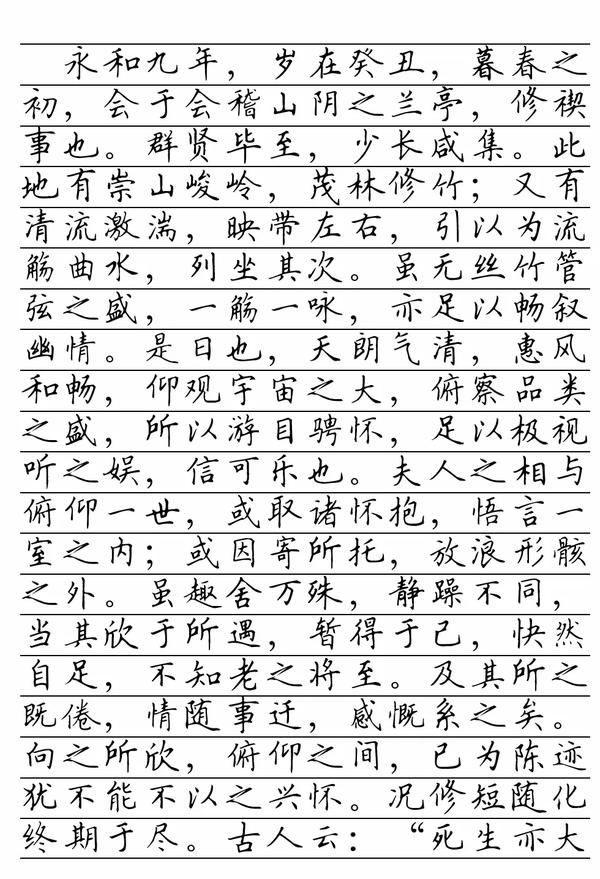 永和九年，岁在癸丑，暮春之
初，会于会稽山阴之兰亭，修禊
事也。群贤毕至，少长咸集。此
地有崇山峻岭，茂林修竹；又有
清流激湍，映带左右，引以为流
觞曲水，列坐其次。虽无丝竹管
弦之盛，一觞一咏，亦足以畅叙
幽情。是日也，天朗气清，惠风
和畅，仰观宇宙之大，俯察品类
之盛，所以游目骋怀，足以极视
听之娱，信可乐也。夫人之相与
俯仰一世，或取诸怀抱，悟言一
室之内；或因寄所托，放浪形骸
之外。虽趣舍万殊，静躁不同，
当其欣于所遇，暂得于己，快然
自足，不知老之将至。及其所之
既倦，情随事迁，感慨系之矣。
向之所欣，俯仰之间，已为陈迹
犹不能不以之兴怀。况修短随化
终期于尽。古人云：“死生亦大